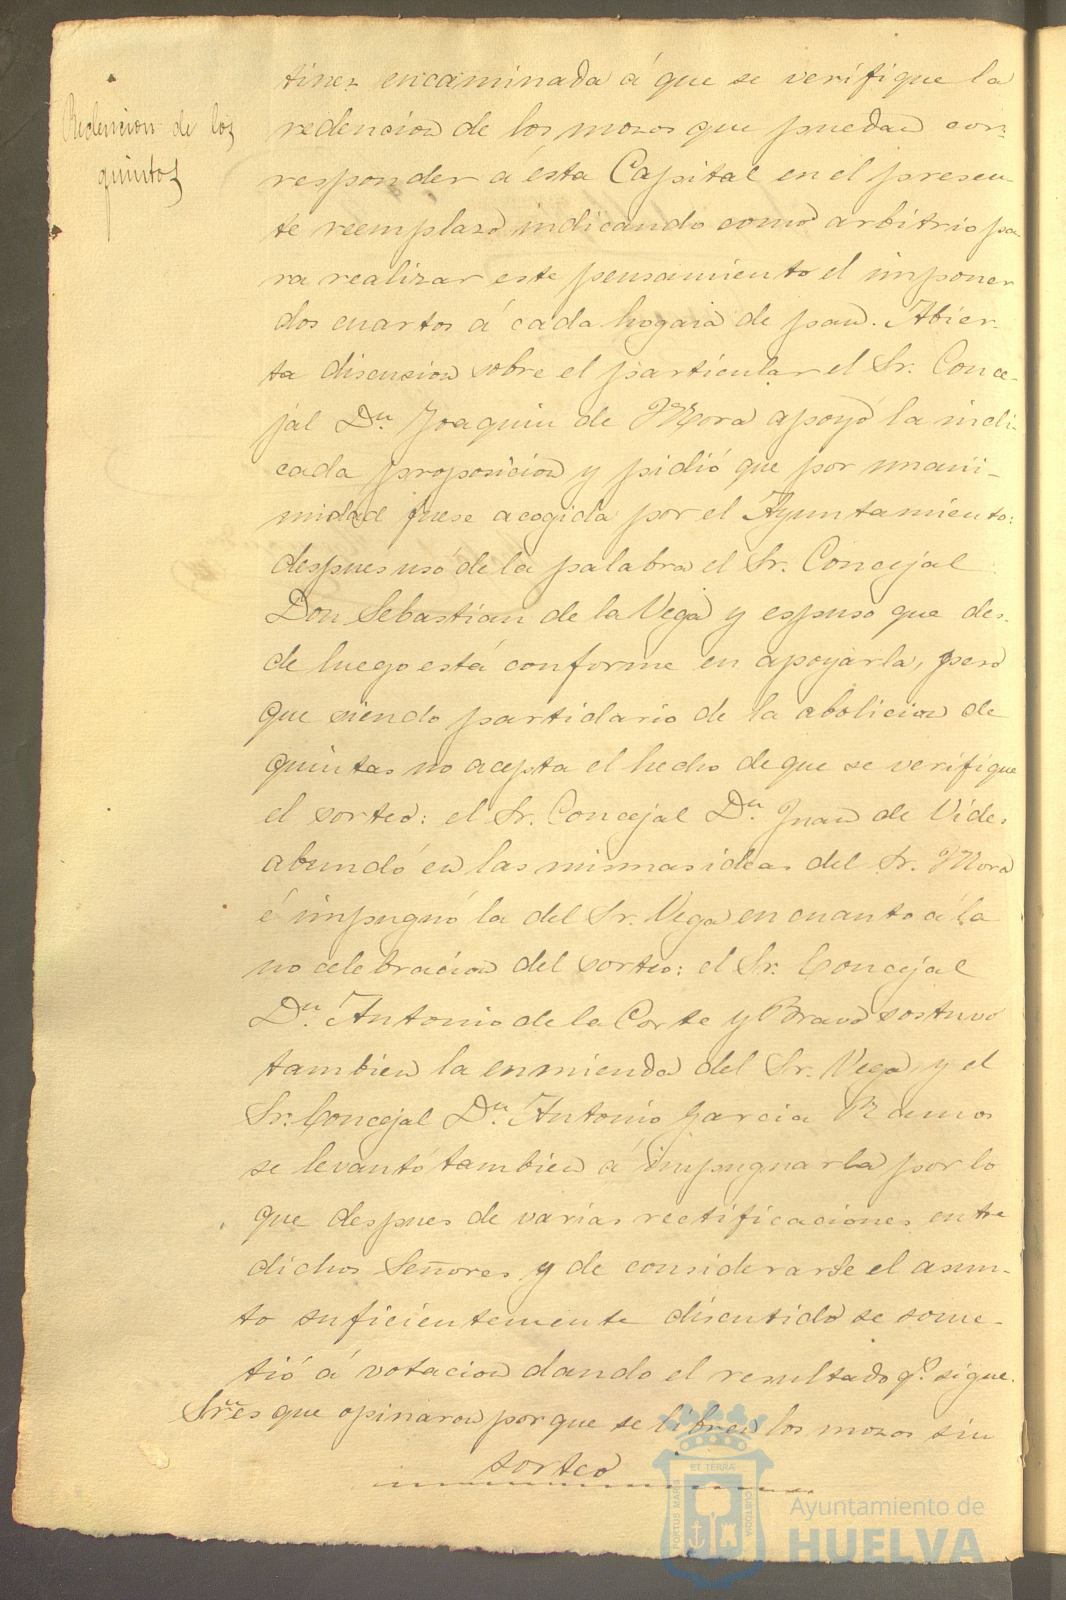 Redencion de los
quintos
tinez encaminada á que se verifique la
redencion de los mozos que puedan cor-
responder á ésta Capital en el presen-
te reemplazo indicando como arbitrio pa
ra realizar este pensamiento el imponer
dos cuartos á cada hogaza de pan. Abier-
ta discusion sobre el particular el Sr. Conce-
jal Dn. Joaquin de Mora apoyó la indi-
cada proposicion y pidió que por unani-
midad fuese acogida por el Ayuntamiento:
despues usó de la palabra el Sr. Concejal
Don Sebastian de la Vega y espuso que des-
de luego está conforme en apoyarla, pero
que siendo partidario de la abolicion de
quintas no acepta el hecho de que se verifique
el sorteo: el Sr. Concejal Dn. Juan de Vides
abundó en las mismas ideas del Sr. Mora
é impugnó la del Sr. Vega en cuanto á la
no celebracion del sorteo: el Sr. Concejal
Dn. Antonio de la Corte y Bravo sostuvo
tambien la enmienda del Sr. Vega, y el
Sr. Concejal Dn. Antonio Garcia Ramos
se levantó tambien á impugnarla por lo
que despues de varias rectificaciones entre
dichos Señores y de considerarse el asun-
to suficientemente discutido se some-
tió á votacion dando el resultado qe. sigue.
Sres que opinaron por que se libren los mozos sin
sorteo
ET TERRÆ
PORTUS MARIS
CUSTODIA
Ayuntamiento de
HUELVA